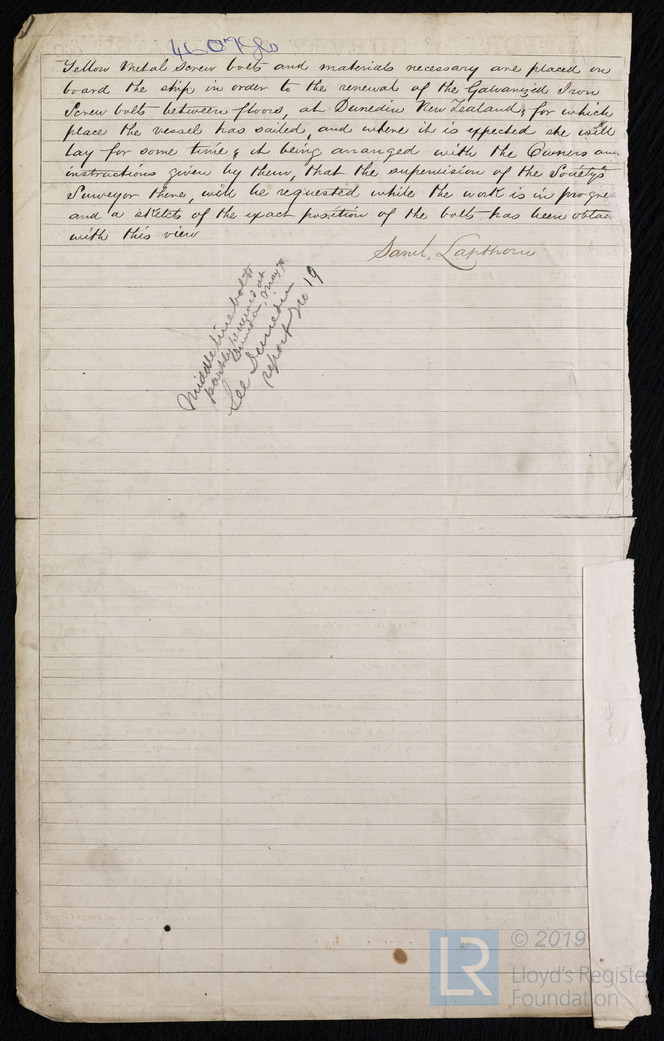 Yellow Metal Screw bolts and materials necessary are placed on
board the ship in order to the renewal of the Galvanized Iron
Screw bolts between floors, at Dunedin New Zealand, for which
place the vessel has sailed, and where it is expected she will
lay for some time & it being arranged with the Owners an
instructions given by them, that the supervision of the Society's
Surveyor there, will be requested while the work is in progre
and a sketch of the exact position of the bolts has been obtai
with this view
Saml. Lapthorn
Middle line bolts
partly renewed at
Dunedin, May
See Dunedin
report No 19
LR
© 2019
Lloyd's Registe
Foundation